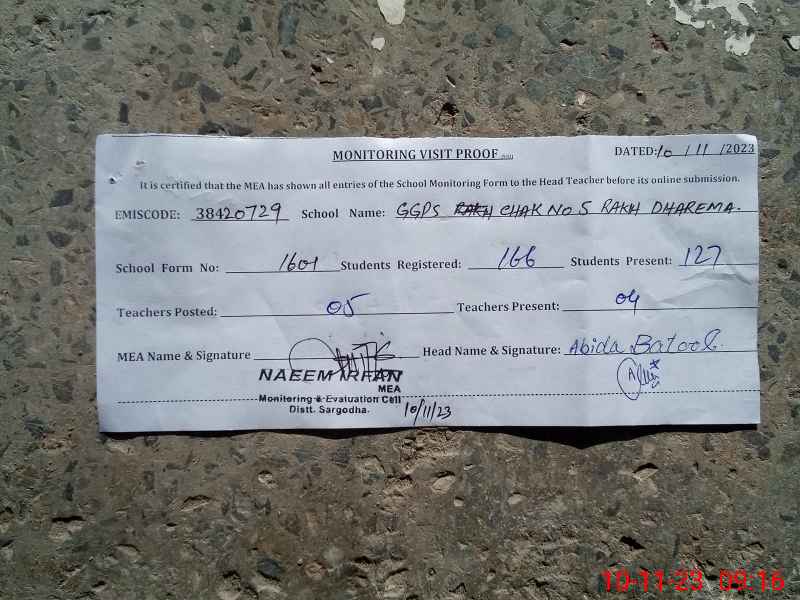 MONITORING VISIT PROOF
DATED: 10 / 11 /2023
It is certified that the MEA has shown all entries of the School Monitoring Form to the Head Teacher before its online submission.
EMISCODE: 38420729 School Name: GGPS CHAK NO 5 RAKH DHAREMA.
School Form No: 1601 Students Registered: 166 Students Present: 127
Teachers Posted: 05 Teachers Present: 04
MEA Name & Signature Head Name & Signature: Abida Batool.
NAEEM IRFAN
MEA
Monitoring & Evaluation Cell
Distt. Sargodha. 10/11/23
10-11-23 09:16